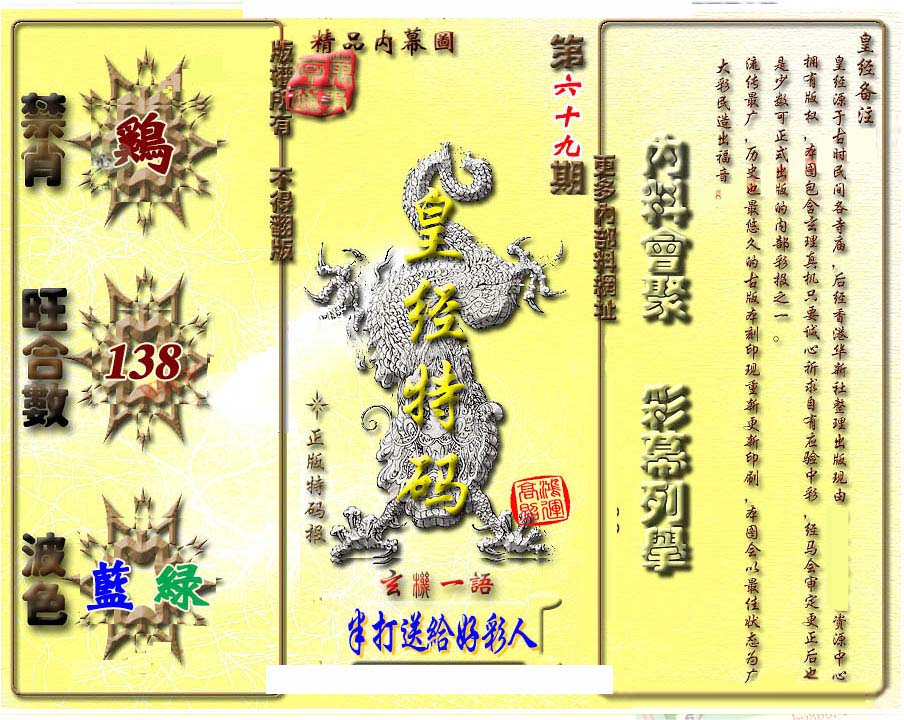 精品內幕圖
版權所有 不得翻版
禁肖
鷄
旺合數
138
波色
藍 綠
皇经特码
正版特码报
鴻運高照
玄機一語
半打送給好彩人
第六十九期
更多內部料網址
內料會聚
彩幕列舉
皇经备注
皇经源于古时民间各寺庙，后经香港华新社整理出版现由 资源中心
拥有版权，本图包含玄理真机只要诚心祈求自有应验中彩，经马会审定更正后也
是少数可正式出版的内部彩报之一。
流传最广，历史也最悠久的古版本刻印现重新更新印刷，本图会以最佳状态为广
大彩民造出福音